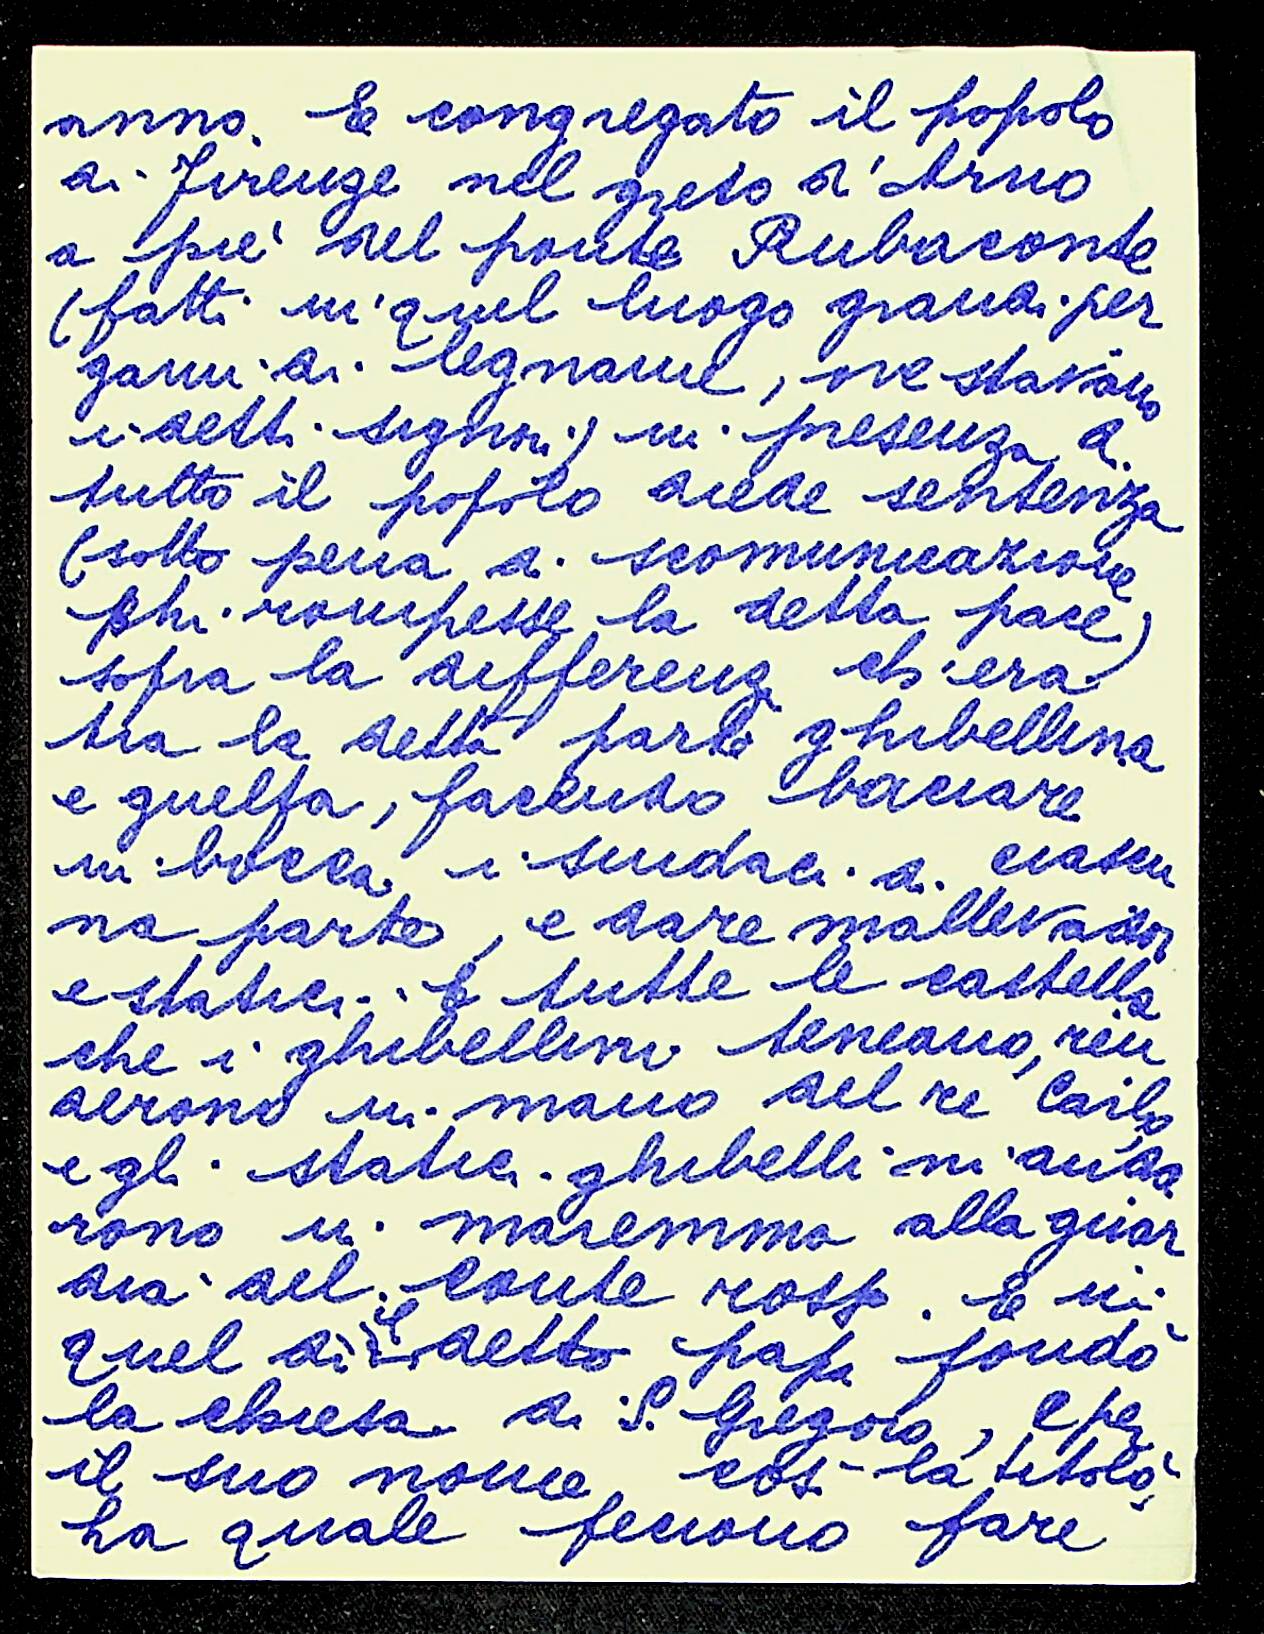 anno. E congregato il popolo
di Firenze nel greto d'Arno
a piè del ponte Rubaconte
(fatti in quel luogo grandi per
gami di legname, ove stavano
i detti signori) in presenza di
tutto il popolo diede sentenza
(sotto pena di scomunicazione
chi rompesse la detta pace)
sopra la differenza ch'era
tra la detta parte ghibellina
e guelfa, facendo baciare
in bocca i sindaci di ciascu
na parte, e dare mallevadori
e statici. E tutte le castella
che i ghibellini teneano, ren
derono in mano del re Carlo,
e gli statici ghibellini anda
rono in maremma alla guar
dia del conte rosso. E in
quel dì il detto papa fondò
la chiesa di S. Gregorio, e per
il suo nome così la titolò,
la quale feciono fare